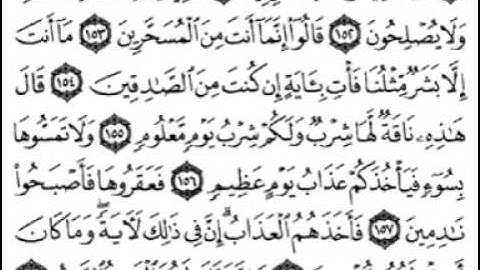 وَلَا يُصْلِحُونَ ١٥٢ قَالُوٓا۟ إِنَّمَآ أَنتَ مِنَ ٱلْمُسَحَّرِينَ ١٥٣ مَآ أَنتَ
إِلَّا بَشَرٌ مِّثْلُنَا فَأْتِ بِـَٔايَةٍ إِن كُنتَ مِنَ ٱلصَّـٰدِقِينَ ١٥٤ قَالَ
هَـٰذِهِۦ نَاقَةٌ لَّهَا شِرْبٌ وَلَكُمْ شِرْبُ يَوْمٍ مَّعْلُومٍ ١٥٥ وَلَا تَمَسُّوهَا
بِسُوٓءٍ فَيَأْخُذَكُمْ عَذَابُ يَوْمٍ عَظِيمٍ ١٥٦ فَعَقَرُوهَا فَأَصْبَحُوا۟
نَـٰدِمِينَ ١٥٧ فَأَخَذَهُمُ ٱلْعَذَابُ ۗ إِنَّ فِى ذَٰلِكَ لَـَٔايَةً ۖ وَمَا كَانَ